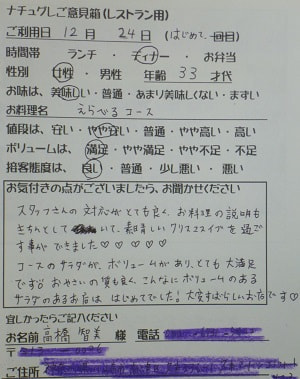 ナチュグしご意見箱(レストラン用)
ご利用日 12月 24日 (はじめて・ 回目)
時間帯 ランチ ・ ディナー ・ お弁当
性別 女性 ・ 男性 年齢 33 才代
お味は、美味しい・普通・あまり美味しくない・まずい
お料理名 えらべるコース
値段は、安い・やや安い・普通・やや高い・高い
ボリュームは、満足・やや満足・やや不足・不足
接客態度は、良い・普通・少し悪い・悪い
お気付きの点がございましたら、お聞かせください
スタッフさんの対応がとても良く、お料理の説明も
きちんとして いて、素晴しいクリスマスイブを過ご
す事ができました♡♡♡♡♡
コースのサラダが、ボリュームがあり、とても大満足
です。おやさいの質も良く、こんなにボリュームのある
サラダのあるお店は はじめてでした。大変すばらしいお店です!
宜しかったらご記入ください
お名前 高橋 智美 様 電話
〒
ご住所